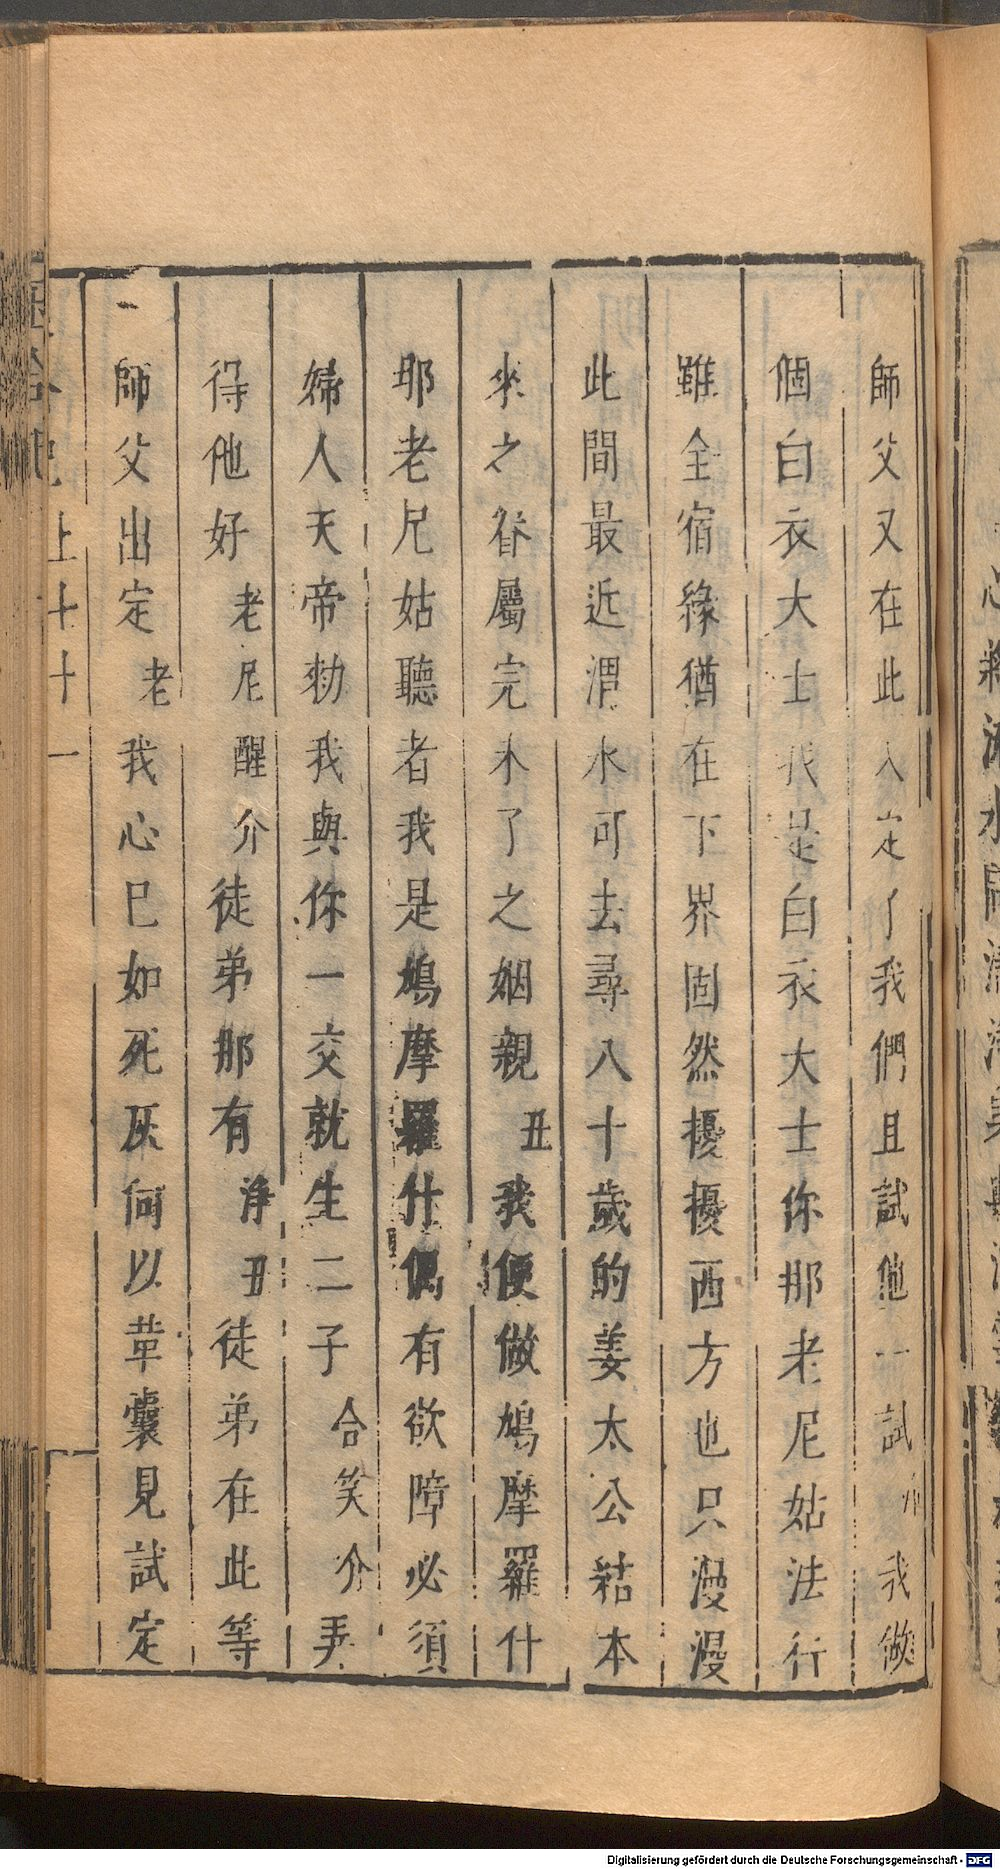 師父又在此入定了我們且試他一試小我做
個白衣大士我是白衣大士你那老尼姑法行
雖全宿緣猶在下界固然擾擾西方也只漫漫
此間最近渭水可去尋八十歲的姜太公結本
來之眷屬完未了之姻親丑我便做鳩摩羅什
耶老尼姑聽者我是鳩摩羅什偶有欲障必須
婦人天帝勑我與你一交就生二子合笑介弄
得他好老尼醒介徒弟那有淨丑徒弟在此等
師父出定老我心已如死灰何以革囊見試定
上
十一
Digitalisierung gefördert durch die Deutsche Forschungsgemeinschaft - DFG